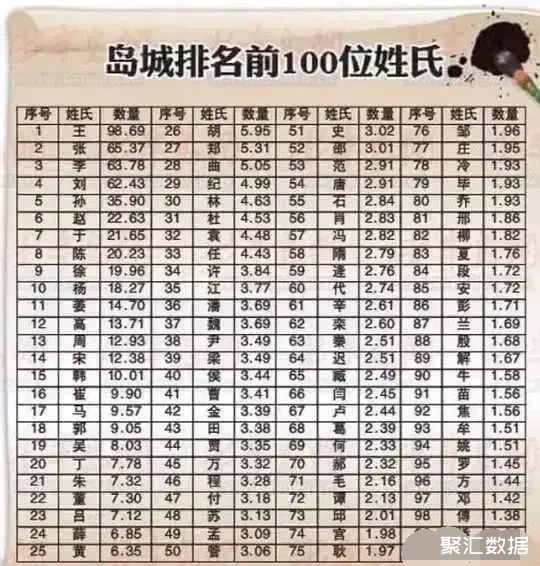 岛城排名前100位姓氏
序号 姓氏 数量 序号 姓氏 数量 序号 姓氏 数量 序号 姓氏 数量
1 王 98.69 26 胡 5.95 51 史 3.02 76 邹 1.96
2 张 65.37 27 郑 5.31 52 邵 3.01 77 庄 1.95
3 李 63.78 28 曲 5.05 53 范 2.91 78 冷 1.93
4 刘 62.43 29 纪 4.99 54 唐 2.91 79 毕 1.93
5 孙 35.90 30 林 4.63 55 石 2.84 80 乔 1.93
6 赵 22.63 31 杜 4.53 56 肖 2.83 81 邢 1.86
7 于 21.65 32 袁 4.48 57 冯 2.82 82 柳 1.82
8 陈 20.23 33 任 4.43 58 隋 2.79 83 夏 1.76
9 徐 19.96 34 许 3.84 59 逄 2.76 84 段 1.72
10 杨 18.27 35 江 3.77 60 代 2.74 85 安 1.72
11 姜 14.70 36 潘 3.69 61 辛 2.61 86 彭 1.71
12 高 13.71 37 魏 3.69 62 栾 2.60 87 兰 1.69
13 周 12.93 38 尹 3.49 63 秦 2.51 88 殷 1.68
14 宋 12.38 39 梁 3.49 64 迟 2.51 89 解 1.67
15 韩 10.01 40 侯 3.44 65 臧 2.49 90 牛 1.58
16 崔 9.90 41 曹 3.41 66 闫 2.45 91 苗 1.56
17 马 9.57 42 金 3.39 67 卢 2.44 92 焦 1.56
18 郭 9.05 43 田 3.38 68 葛 2.39 93 牟 1.51
19 吴 8.03 44 贾 3.35 69 何 2.33 94 姚 1.51
20 丁 7.78 45 万 3.32 70 郝 2.32 95 罗 1.45
21 朱 7.32 46 程 3.28 71 毛 2.16 96 方 1.44
22 董 7.30 47 付 3.18 72 谭 2.13 97 邓 1.42
23 吕 7.12 48 苏 3.13 73 邱 2.01 98 傅 1.38
24 薛 6.85 49 孟 3.09 74 宫 1.98
25 黄 6.35 50 管 3.06 75 耿 1.97
聚汇数据